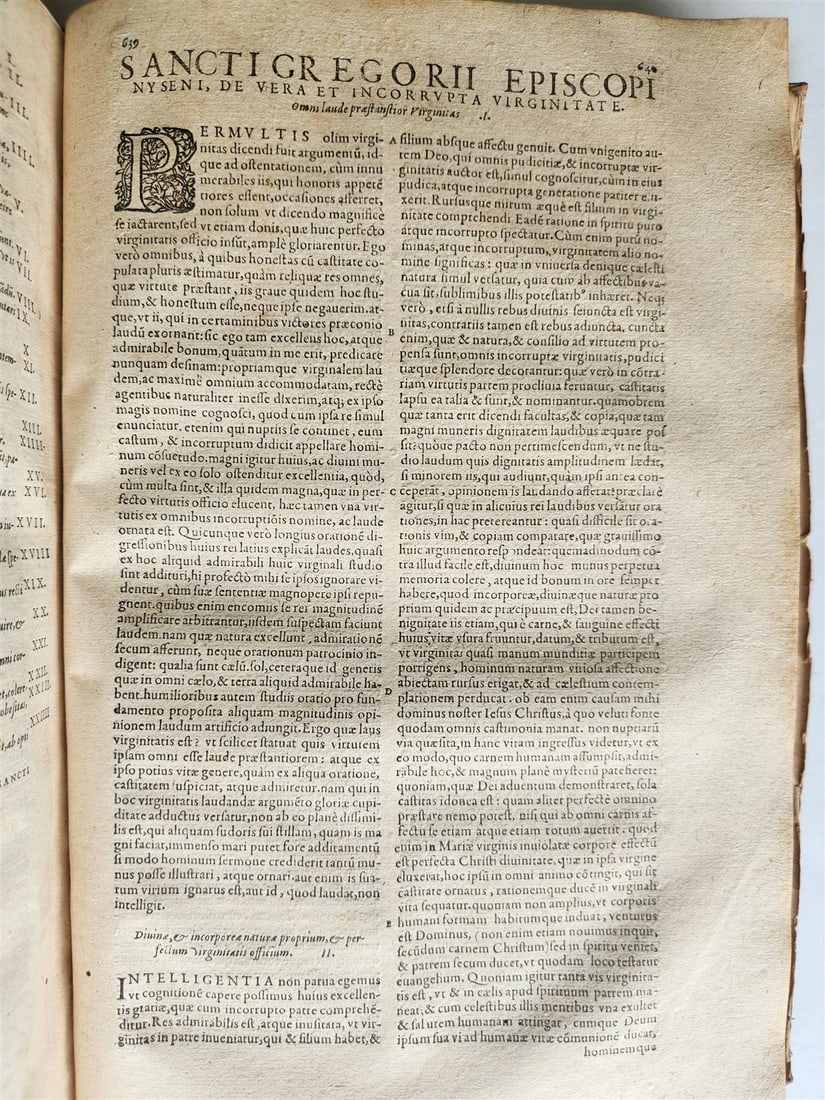 639
640
SANCTI GREGORII EPISCOPI
NYSENI, DE VERA ET INCORRVPTA VIRGINITATE.
Omni laude præstantior Virginitas .I.
PERMVLTIS olim virgi-
nitas dicendi fuit argumentū, id-
que ad ostentationem, cùm innu
merabiles iis, qui honoris appetē
tiores essent, occasiones afferret,
non solùm vt dicendo magnificè
se iactarent, sed vt etiam donis, quæ huic perfecto
virginitatis officio insūt, amplè gloriarentur. Ego
verò omnibus, à quibus honestas cū castitate co-
pulata pluris æstimatur, quàm reliquæ res omnes,
quæ virtute præstant, iis graue quidem hoc stu-
dium, & honestum esse, neque ipse negauerim. at-
que, vt ii, qui in certaminibus victores præconio
laudū exornant: sic ego tam excellens hoc, atque
admirabile bonum, quātum in me erit, prædicare
nunquam desinam: propriamque virginalem lau
dem, ac maximè omnium accommodatam, rectè
agentibus naturaliter inesse dixerim, atq; ex ipso
magis nomine cognosci, quod cum ipsa re simul
enunciatur. etenim qui nuptiis se continet, eum
castum, & incorruptum didicit appellare homi-
num cōsuetudo. magni igitur huius, ac diuini mu-
neris vel ex eo solo ostenditur excellentia, quòd,
cùm multa sint, & illa quidem magna, quæ in per-
fecto virtutis officio elucent, hæc tamen vna vir-
tutis ex omnibus incorruptiōis nomine, ac laude
ornata est. Quicunque verò longius orationē di-
gressionibus huius rei latius explicāt laudes, quasi
ex hoc aliquid admirabili huic virginali studio
sint addituri, hi profectò mihi se ipsos ignorare vi-
dentur, cùm suæ sententiæ magnopere ipsi repu-
gnent. quibus enim encomiis se rei magnitudinē
amplificare arbitrantur, iisdem suspectam faciunt
laudem. nam quæ natura excellunt, admirationē
secum afferunt, neque orationum patrocinio in-
digent: qualia sunt cælū, sol, ceteraque id generis
quæ in omni cælo, & terra aliquid admirabile ha-
bent. humilioribus autem studiis oratio pro fun-
damento proposita aliquam magnitudinis opi-
nionem laudum artificio adiungit. Ergo quæ laus
virginitatis est? vt scilicet statuat quis virtutem
ipsam omni esse laude præstantiorem: atque ex
ipso potius vitæ genere, quàm ex aliqua oratione,
castitatem suspiciat, atque admiretur. nam qui in
hoc virginitatis laudandæ argumēto gloriæ cupi-
ditate adductus versatur, non ab eo planè dissimi-
lis est, qui aliquam sudoris sui stillam, quam is ma
gni faciat, immenso mari putet fore additamentū
si modo hominum sermone crediderit tantū mu-
nus posse illustrari, atque ornari. aut enim is sua-
rum virium ignarus est, aut id, quod laudat, non
intelligit.
Diuinæ, & incorporeæ naturæ proprium, & per-
fectum Virginitatis officium. II.
INTELLIGENTIA non parua egemus
vt cognitionē capere possimus huius excellen-
tis gratiæ, quæ cum incorrupto patre comprehē-
ditur. Res admirabilis est, atque inusitata, vt vir-
ginitas in patre inueniatur, qui & filium habet, &
A filium absque affectu genuit. Cum vnigenito au-
tem Deo, qui omnis pudicitiæ, & incorruptæ vir-
ginitatis auctor est, simul cognoscitur, cùm in eius
pudica, atque incorrupta generatione pariter elu-
xerit. Rursusque mirum æquè est filium in virgi-
nitate comprehendi. Eadē ratione in spiritu puro
atque incorrupto spectatur. Cùm enim purū no-
minas, atque incorruptum, virginitatem alio no-
mine significas: quæ in vniuersa denique cælesti
natura simul versatur, quia cùm ab affectibus va-
cua sit, sublimibus illis potestatib⁹ inhæret. Neq;
verò, etsi à nullis rebus diuinis seiuncta est virgi-
B nitas, contrariis tamen est rebus adiuncta. cuncta
enim, quæ & natura, & consilio ad virtutem pro-
pensa sunt, omnis incorruptæ virginitatis, pudici
tiæque splendore decorantur: quæ verò in cōtra-
riam virtutis partem procliuia feruntur, castitatis
lapsu ea talia & sunt, & nominantur. quamobrem
quæ tanta erit dicendi facultas, & copia, quæ tam
magni muneris dignitatem laudibus æquare pos
sit? quóue pacto non pertimescendum, vt ne stu-
dio laudum quis dignitatis amplitudinem lædat,
si minorem iis, qui audiunt, quàm ipsi antea con-
C ceperāt, opinionem is laudando afferat? præclarè
agitur, si quæ in alicuius rei laudibus versātur ora
tiones, in hac prætereantur: quasi difficile sit o.a-
tionis vim, & copiam comparare, quæ grauissimo
huic argumento respondeat: quemadmodum cō-
tra illud facile est, diuinum hoc munus perpetua
memoria colere, atque id bonum in ore semper
habere, quod incorporeæ, diuinæque naturæ pro
prium quidem ac præcipuum est, Dei tamen be-
nignitate iis etiam, qui è carne, & sanguine effecti
huius vitæ vsura fruuntur, datum, & tributum est,
vt virginitas quasi manum munditiæ participem
porrigens, hominum naturam vitiosa affectione
D abiectam rursus erigat, & ad cælestium contem-
plationem perducat. ob eam enim causam mihi
dominus noster Iesus Christus, à quo veluti fonte
quodam omnis castimonia manat. non nuptiarū
via quæsita, in hanc vitam ingressus videtur, vt ex
eo modo, quo carnem humanam assumpsit, admi-
rabile hoc, & magnum planè mysteriū patefieret:
quoniam, quæ Dei aduentum demonstraret, sola
castitas idonea est: quam aliter perfectè omnino
præstare nemo potest, nisi qui ab omni carnis af-
fectu se etiam atque etiam totum auertit. quod
enim in Mariæ virginis inuiolatæ corpore effectū
est perfecta Christi diuinitate, quæ in ipsa virgine
eluxerat, hoc ipsū in omni animo cōtingit, qui sit
castitate ornatus, rationemque ducē in virginali
vita sequatur. quoniam non amplius, vt corporis
E humani formam habitumque induat, venturus
est Dominus, (non enim etiam nouimus, inquit,
secūdum carnem Christum) sed in spiritu veniet,
& patrem secum ducet, vt quodam loco testatur
euangelium. Quoniam igitur tanta vis virginita-
tis est, vt & in cælis apud spirituum patrem ma-
neat, & cum celestibus illis mentibus vna exultet
& salutem humanam attingat, cumque Deum
ipsum sua vi ad humanæ vitæ cōmunionē ducat,
hominemque